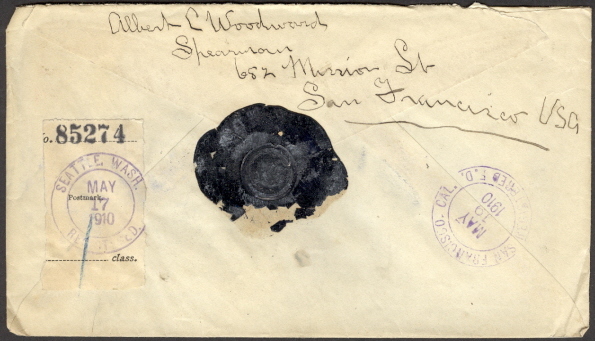 Albert L Woodward
Spearmour
682 Mission St
San Francisco USA
o. 85274
SEATTLE, WASH.
MAY
Postmark.
17
1910
class.
SAN FRANCISCO, CAL.
MAY
19
1910